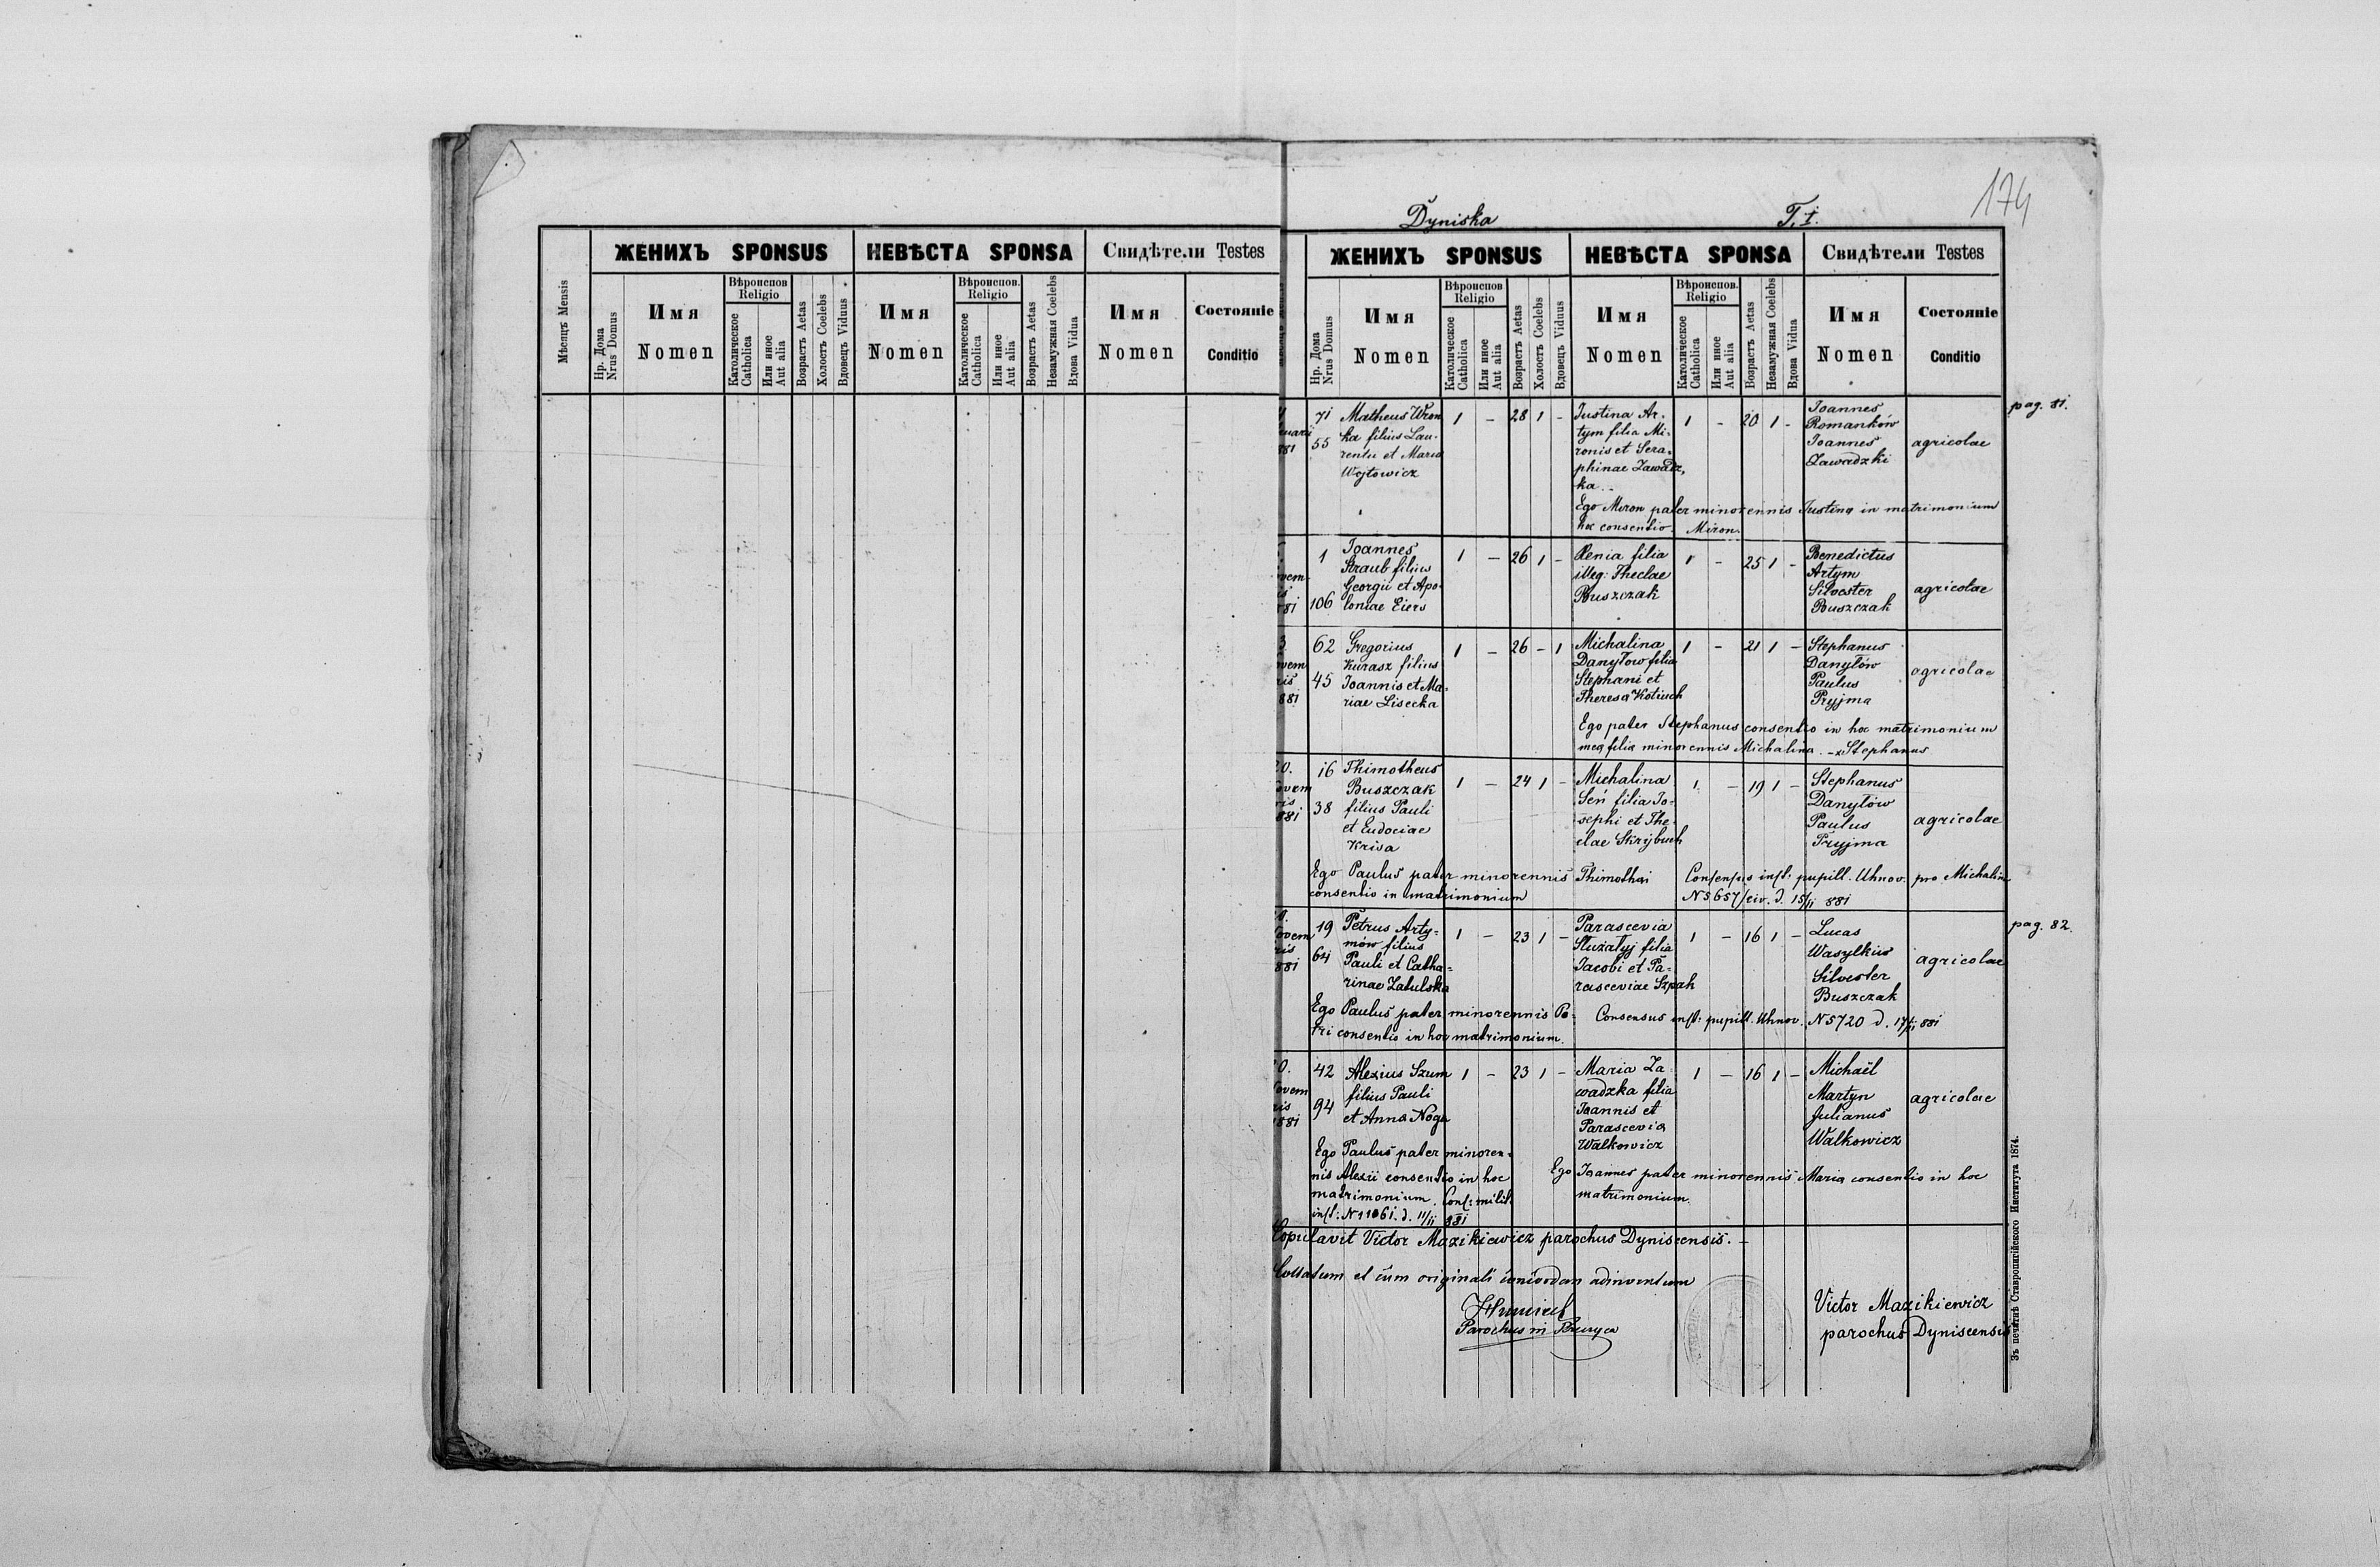 ЖЕНИХЪ SPONSUS
НЕВѢСТА SPONSA
Свидѣтели Testes
Мѣсяцъ Mensis
Нр. Дома
Nrus Domus
Имя
Nomen
Вѣроиспов
Religio
Католическое
Catholica
Или иное
Aut alia
Возрастъ Aetas
Холостъ Coelebs
Вдовецъ Viduus
Имя
Nomen
Вѣроиспов.
Religio
Католическое
Catholica
Или иное
Aut alia
Возрастъ Aetas
Незамужная Coelebs
Вдова Vidua
Имя
Nomen
Состояніе
Conditio
174
Dyniska
T. I.
ЖЕНИХЪ SPONSUS
НЕВѢСТА SPONSA
Свидѣтели Testes
Нр. Дома
Nrus Domus
Имя
Nomen
Вѣроиспов
Religio
Католическое
Catholica
Или иное
Aut alia
Возрастъ Aetas
Холостъ Coelebs
Вдовецъ Viduus
Имя
Nomen
Вѣроиспов.
Religio
Католическое
Catholica
Или иное
Aut alia
Возрастъ Aetas
Незамужная Coelebs
Вдова Vidua
Имя
Nomen
Состояніе
Conditio
pag. 81.
nuarii
881
71
55
Matheus Wron
ka filius Lau-
rentii et Maria
Wojtowicz
1 - 28 1 -
Justina Ar-
tym filia Mi-
ronis et Sera-
phinae Zawadz-
ka
1 - 20 1 -
Joannes
Romanków
Joannes
Zawadzki
agricolae
Ego Miron pater minorennis Justina in matrimonium
hoc consentio. Miron.
ovem
is
881
1
106
Joannes
Straub filius
Georgii et Apo-
loniae Eiers
1 - 26 1 -
Xenia filia
illeg: Theclae
Buszczak
1 - 25 1 -
Benedictus
Artym
Silvester
Buszczak
agricolae
3.
ovem
ris
881
62
45
Gregorius
Kurasz filius
Joannis et Ma-
riae Lisecka
1 - 26 - 1
Michalina
Danyłow filia
Stephani et
Theresa Kotiuch
1 - 21 1 -
Stephanus
Danyłów
Paulus
Pryjma
agricolae
Ego pater Stephanus consentio in hoc matrimonium
mea filia minorennis Michalina. -x Stephanus
20.
ovem
ris
881
16
38
Thimotheus
Buszczak
filius Pauli
et Eudociae
Krisa
1 - 24 1 -
Michalina
Seń filia Jo-
sephi et The-
clae Skrybuch
1 - 19 1 -
Stephanus
Danyłów
Paulus
Pryjma
agricolae
Ego Paulus pater minorennis Thimothei
consentio in matrimonium
Consensus inst. pupill. Uhnov. pro Michalin
N 5657/civ. d. 15/11 881
pag. 82.
0.
ovem
ris
881
19
64
Petrus Arty-
mów filius
Pauli et Catha-
rinae Zatulska
1 - 23 1 -
Parascevia
Służałyj filia
Jacobi et Pa-
rasceviae Szpak
1 - 16 1 -
Lucas
Wasylkiw
Silvester
Buszczak
agricolae
Ego Paulus pater minorennis Pe-
tri consentio in hoc matrimonium.
Consensus inst: pupill. Uhnov. N 5720 d. 17/11 881
0.
ovem
ris
881
42
94
Alexius Szum
filius Pauli
et Anna Noga
1 - 23 1 -
Maria Za-
wadzka filia
Joannis et
Parascevia
Walkowicz
1 - 16 1 -
Michaël
Martyn
Julianus
Walkowicz
agricolae
Ego Paulus pater minoren-
nis Alexii consentio in hoc
matrimonium. Cons: milit.
inst: N 11061. d. 11/11 881
Ego Joannes pater minorennis Maria consentio in hoc
matrimonium.
Copulavit Victor Mazikiewicz parochus Dyniscensis. -
Collatum et cum originali concordan adinventum
Parochus in
Victor Mazikiewicz
parochus Dyniscensis
Зъ печатнѣ Ставропигійского Института 1874.